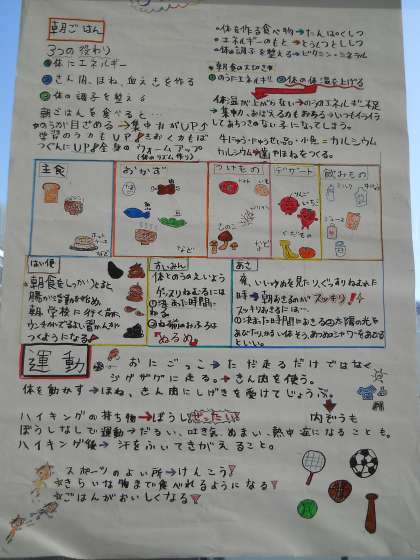 朝ごはん
3つの変わり
①体にエネルギー
②きん肉、ほね、血えきを作る
③体の調子を整える
朝ごはんを食べると…
のうが目ざめる→集中力がUP
学習の力もUP きおく力もば
つぐんにUP 全身のウォームアップ
(体のリズム作り)
体を作る食べ物→たんぱくしつ
エネルギーのもと→とうしつとししつ
体の調子を整える→ビタミン・ミネラル
朝食の大切さ
①のうにエネルギー ②体の体温を上げる
体温が上がらない→のうのエネルギー不足
→集中力、おぼえる力もおちる→いつもイライラ
してあきっぽい子になってしまう。
牛にゅう・にゅうせい品・小魚=カルシウム
カルシウム→歯やほねをつくる。
主食
おかず
つけもの
デザート
飲みもの
など
など
など
はい便
朝食をしっかりとると、
腸がぐう動を始め、
朝学校に行く前に
ウンチがでるよい習かんが
つくようになる
すいみん
体をととのえよう
グッスリねむるには
①決まった時間に
ねる
②ね前のおふろは
ぬるめ
あさ
夜、いいゆめを見たり、ぐっすりねむれた
時→朝おきるのがスッキリ!
スッキリおきるには…
①決まった時間におきる②太陽の光を
あびて
といい。
運動
おにごっこ→ただ走るだけではなく
ジグザグに走る。→きん肉を使う。
体を動かす→ほね、きん肉にしげきを受けてじょうぶ。
ハイキングの持ち物→ぼうしぜったい
内ぞうも
ぼうしなしで運動→だるい、はき気、めまい、熱中症になることも。
ハイキング後→汗をふいてきがえること。
スポーツのよい所→けんこう
きらいな物まで食べれるようになる
ごはんがおいしくなる